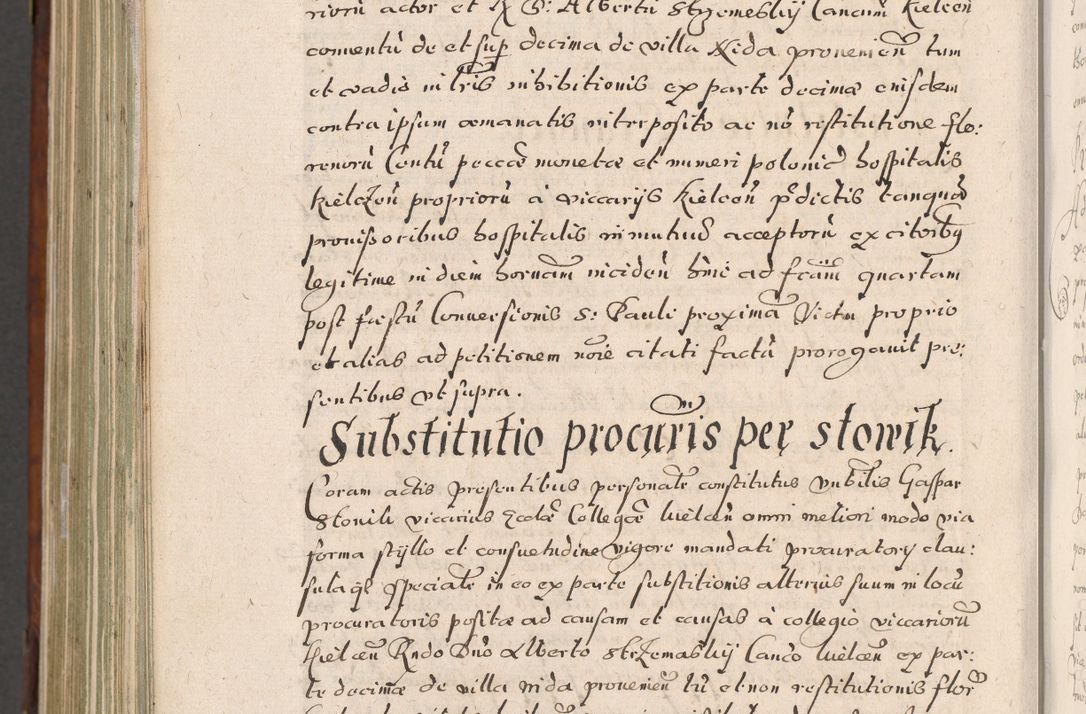 riorū actor et R D: Albertū Strzemeskij Cancūm Kielceñ
conventū de et sup decima de villa Nida provenieñ tum
et vadio in lr̃is inhibitionis ex parte decimæ eiusdem
contra ipsum æmanatis interposito ac nō restitutione flo:
renorū Centū peccæ monetæ et numeri polonic̃ hospitalis
Kielczeñ propriorū à viccarijs Kielceñ p̃dictis tanquā
provisoribus hospitalis in mutuū acceptorū ex citōribq
legitime in diem hornam inciden hinc ad fr̃iam quartam
post fæstū Conversionis S: Pauli proximā Victu proprio
et alias ad petitionem noie citati factā prorogavit præ:
sentibus ut supra.
Substitutio procuris per Slowik.
Coram actis præsentibus personalr constitutus Vnbilis Gaspar
Slowik viccarius Eccłæ Collegæ Kielceñ omni meliori modo via
forma stijllo et consuetudine vigore mandati procuratorij clau:
sulaqe specialr in eo ex parte substitionis alterius suum in locū
procuratoris positæ ad causam et causas à collegio viccariorū
Kielceñ Rndo Dno Alberto Strzemeskij Canco Kielceñ ex par:
te decimæ de villa nida provenieñ tū et non restitutionis flor